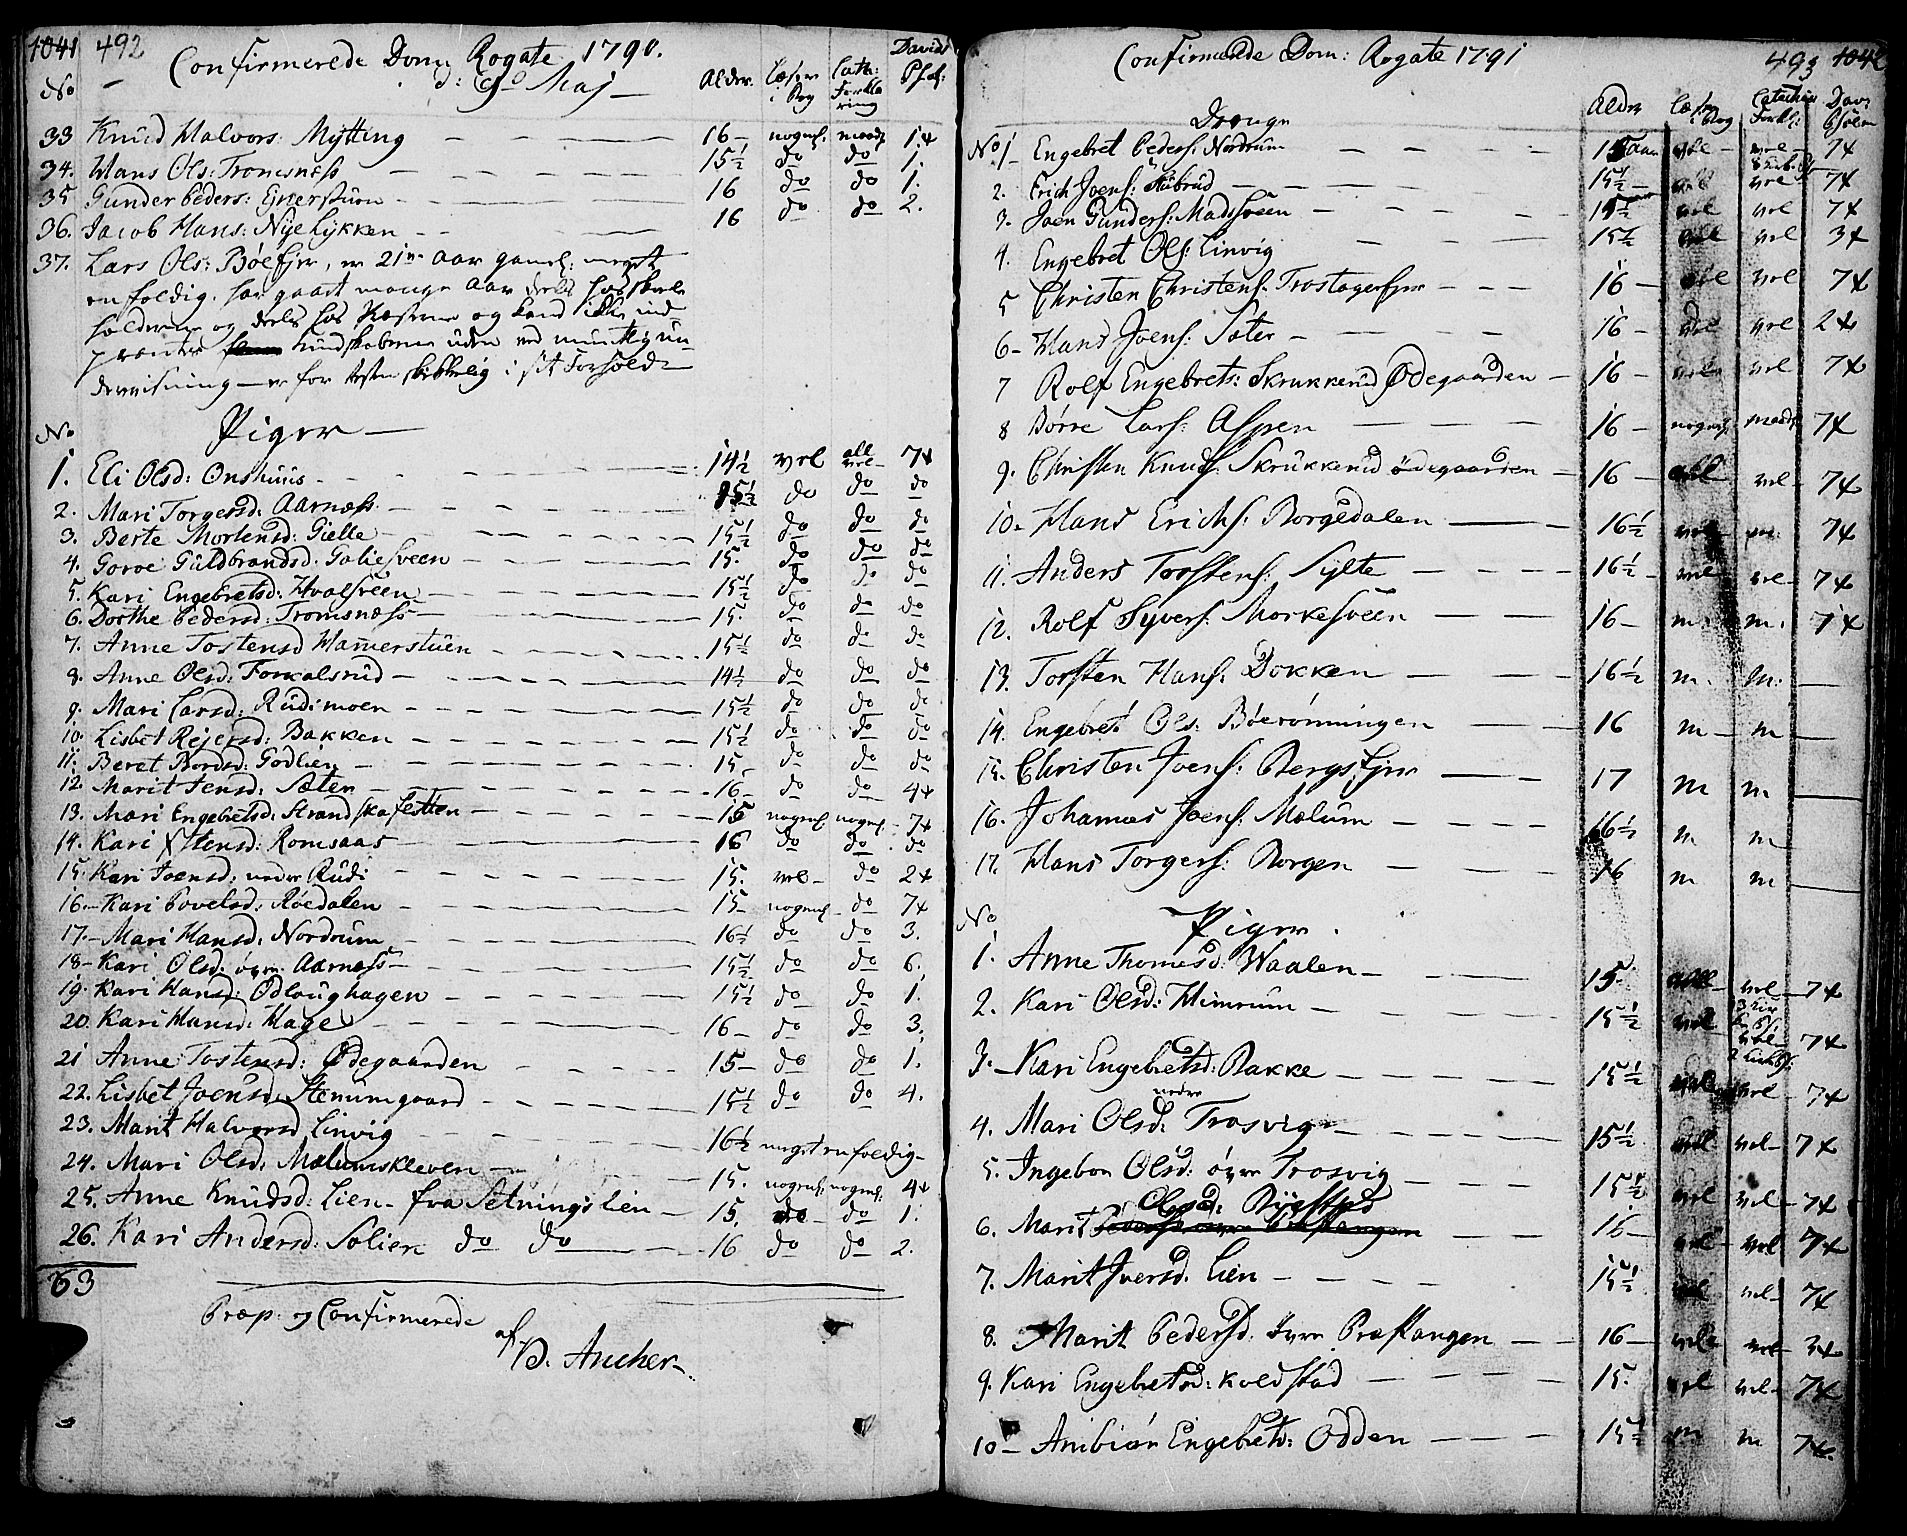 1041 492 Confirmerede Dom: Rogate 1790. Davids
No d: 9do Maj Alder. Læser i Bog Cate: Forklaring Psal:
33 Knud Halvors: Mytting 16 nogenl. maadl 1.
34. Hans Ols: Tromsnæss 15½ do do 1.
35 Gunder Peders: Ejnerstuen 16 do do 1.
36. Jacob Hans: Nye Lykken 16 do do 2.
37. Lars Ols: Bøe Ejer, er 21 Aar gaml: meget
enfoldig, har gaaet mange Aar deels hos skole
holderne og deels hos Præsterne og kand ikke ind
prentes kundskaberne uden ved mundtlig un
dervisning er for Resten skikkelig i sit Forhold
No Piger
1. Eli Olsd: Onshuus 14½ vel all vel 7
2. Mari Torgersd: Aarnæss 15½ do do do
3. Berte Mortensd: Gielle 15½ do do do
4. Goroe Guldbrandsd: Taliesveen 15. do do do
5. Kari Engebretsd: Hvalsveen 15½ do do do
6. Dorthe Pedersd: Tromsnæss 15. do do do
7. Anne Tostensd Hamerstuen 15½ do do do
8. Anne Olsd: Forkalsrud 14½ do do do
9. Mari Larsd: Rudimoen 15½ do do do
10. Lisbet Rejersd: Bakken 15½ do do do
11. Beret Bordsd: Godlien 15. do do do
12. Marit Jensd: Sæter 16 do do 4
13. Mari Engebretsd: Strandskaffetten 15 nogenl. nogenl. 7
14. Kari Stensd: Romsaas 16 do do do
15. Kari Joensd: nedre Rudi 15. vel do 2
16. Kari Povelsd: Røedalen 15 nogenl. do 7
17. Mari Hansd: Nordrum 16½ do do 3.
18 Kari Olsd: øvre Aarnæss 15½ do do 6.
19. Kari Hansd: Odloughagen 15½ do do 1.
20. Kari Hansd: Hage 16 do do 3.
21 Anne Tostensd: Ødegaarden 15 do do 1.
22. Lisbet Joensd: Stenumgaard 15½ do do 4.
23. Marit Halvorsd Linvig 16½ meget enfoldig
24. Mari Olsd: Mælumskleven 15. nogenl: nogenl: 4
25. Anne Knudsd: Lien fra Setningslien 15. do 1.
26. Kari Andersd: Solien do do 16 do do 2.
63
Præp: og Confirmerede
af
P. Ancher
Confirmerede Dom: Rogate 1791 493 1042
Drenge Alder Læser i Bog Catechis: Forkl: Dav: Psalm
No 1 Engebret Peders: Nordrum 15 Aar vel vel 7
2. Erich Joens: Stubrud 15½ vel vel 7
3. Joen Gunders: Madssveen 15½ vel vel 7
4. Engebret Ols: Linvig 15½ vel vel 3
5 Christen Christens: Trostagerejer 16 vel vel 7
6 Hans Joens: Sæter 16 vel vel 2
7 Rolf Engebrets: Skrukkerud Ødegaarden 16 vel vel 7
8 Børre Lars: Aspen 16 nogenl. maadl 7
9. Christen Knuds: Skrukkerud ødegaarden 16 vel vel 7
10. Hans Erichs: Borgedalen 16½ vel m: 7
11. Anders Torstens: Sylte 16½ vel vel 7
12. Rolf Syvers: Morkesveen 16 m. m. 7
13. Torsten Hans: Dokken 16½ m. m.
14. Engebret Ols: Bøerønningen 16 m m
15. Christen Joens: Bergsejer 17 m m
16. Johannes Joens: Mælum 16½ m m
17. Hans Torgers: Borgen 16 m m
No Piger.
1. Anne Thomesd: Waalen 15 vel vel 7
2. Kari Olsd: Himrum 15½ vel vel 7
3. Kari Engebretsd: Bakke 15½ vel vel 7
4. Mari Olsd: nedre Trosvig 15½ vel vel 7
5. Ingebor Olsd: øvre Trosvig 15½ vel vel 7
6. Marit Olsd: Byestad 16 vel vel 7
7. Marit Iversd: Lien 15½ vel vel 7
8. Marit Pedersd: øvre Præstangen 16 vel vel 3
9. Kari Engebretsd: Koldstad 15. vel vel 7
10 Anibiør Engebretsd: Odden 15½ m m 7